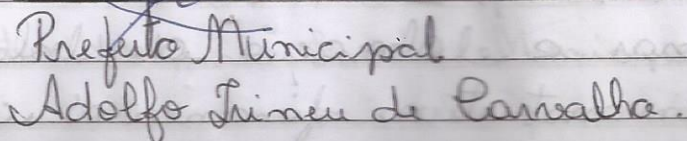 Prefeito Municipal
Adolfo Irineu de Carvalho.